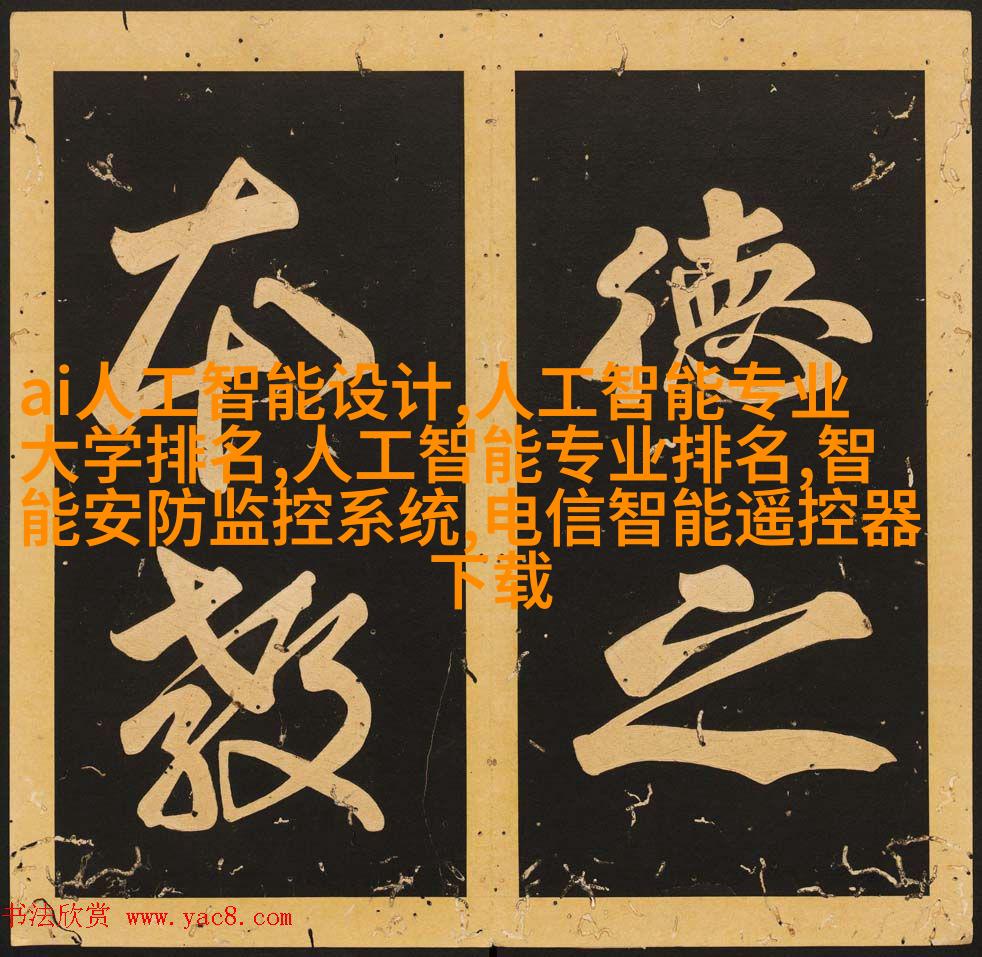 德之
本教
ai人工智能设计,人工智能专业
大学排名,人工智能专业排名,智
能安防监控系统,电信智能遥控器
下载
书法欣赏 www.yac8.com